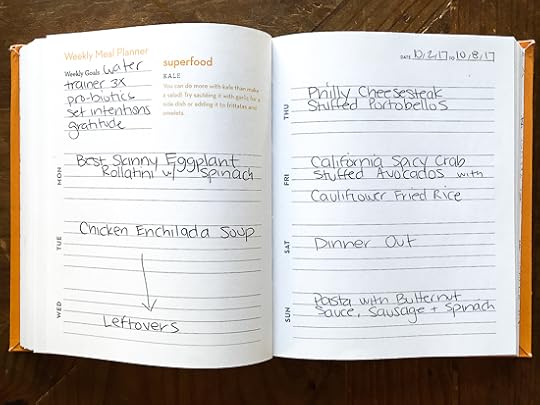 Weekly Meal Planner
Weekly Goals water
trainer 3x
pro-biotics
set intentions
gratitude
superfood
KALE
You can do more with kale than make
a salad! Try sautéing it with garlic for a
side dish or adding it to frittatas and
omelets.
MON
Best Skinny Eggplant
Rollatini w/ spinach
TUE
Chicken Enchilada Soup
WED
Leftovers
DATE 10,2,17 TO 10,8,17
THU
Philly Cheesesteak
Stuffed Portobellos
FRI
California Spicy Crab
Stuffed Avocados with
Cauliflower Fried Rice
SAT
Dinner Out
SUN
Pasta with Butternut
Sauce, Sausage + Spinach